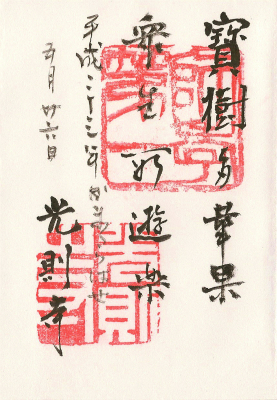 寶樹多華果
衆生所遊樂
平成二十三年 かまくらはせ
五月廿六日
光則寺